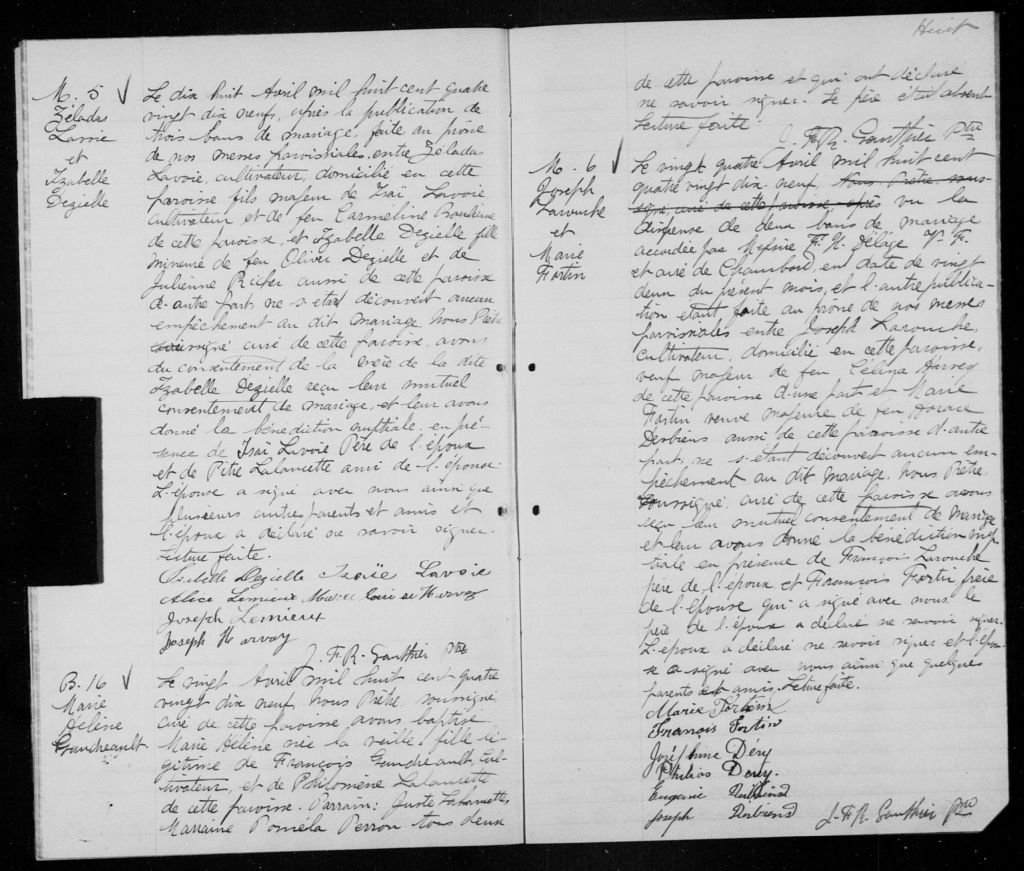 M. 5
Zélada
Lavoie
et
Izabelle
Dezielle
Le dix huit Avril mil huit cent quatre
vingt dix neuf, après la publication de
trois bans de mariage, faite au prône
de nos messes paroissiales, entre Zélada
Lavoie, cultivateur, domicilié en cette
paroisse fils majeur de Isaï Lavoie
cultivateur et de feu Carméline
de cette paroisse, et Izabelle Dezielle fille
mineure de feu Olivier Dezielle et de
Julienne Richer aussi de cette paroisse
d'autre part, ne s'étant découvert aucun
empêchement au dit mariage, Nous Prêtre
soussigné curé de cette paroisse, avons
du consentement de la mère de la dite
Izabelle Dezielle reçu leur mutuel
consentement de mariage, et leur avons
donné la bénédiction nuptiale, en pré-
sence de Isaï Lavoie Père de l'époux
et de Pitre Lalancette ami de l'épouse.
L'épouse a signé avec nous ainsi que
plusieurs autres parents et amis et
l'époux a déclaré ne savoir signer.
Lecture faite.
Isabelle Dezielle Isaïe Lavoie
Alice Lemieux Marie Louise Harvey
Joseph Lemieux
Joseph Harvey
J. F. R. Gauthier Ptre
B. 16
Marie
Hélène
Gaudreault
Le vingt Avril mil huit cent quatre
vingt dix neuf, Nous Prêtre soussigné
curé de cette paroisse, avons baptisé
Marie Hélène née la veille, fille lé-
gitime de François Gaudreault, Cul-
tivateur, et de Philomène Lalancette
de cette paroisse. Parrain: Juste Lalancette,
Marraine Poméla Perron tous deux
Huit
de cette paroisse et qui ont déclaré
ne savoir signer. Le père était absent
Lecture faite.
J. F. R. Gauthier Ptre
M. 6
Joseph
Larouche
et
Marie
Fortin
Le vingt quatre Avril mil huit cent
quatre vingt dix neuf, Nous Prêtre sous-
signé, curé de cette paroisse après vu la
dispense de deux bans de mariage
accordée par Messire F. X. Délâge V. F.
et curé de Chambord, en date de vingt
deux du présent mois, et l'autre publica-
tion étant faite au prône de nos messes
paroissiales entre Joseph Larouche,
cultivateur, domicilié en cette paroisse,
veuf majeur de feu Célina Harvey
de cette paroisse d'une part et Marie
Fortin veuve majeure de feu Horace
Desbiens aussi de cette paroisse d'autre
part, ne s'étant découvert aucun em-
pêchement au dit mariage. Nous Prêtre
Soussigné, curé de cette paroisse avons
reçu leur mutuel consentement de mariage
et leur avons donné la bénédiction nup-
tiale en présence de François Larouche
père de l'époux et François Fortin, frère
de l'épouse qui a signé avec nous, le
père de l'époux a déclaré ne savoir signer.
L'époux a déclaré ne savoir signer et l'épou-
se a signé avec nous ainsi que quelques
parents et amis. Lecture faite.
Marie Fortin
François Fortin
Joséphine Dery
Philias Dery
Eugenie Desbiens
Joseph Desbiens
J. F. R. Gauthier Ptre